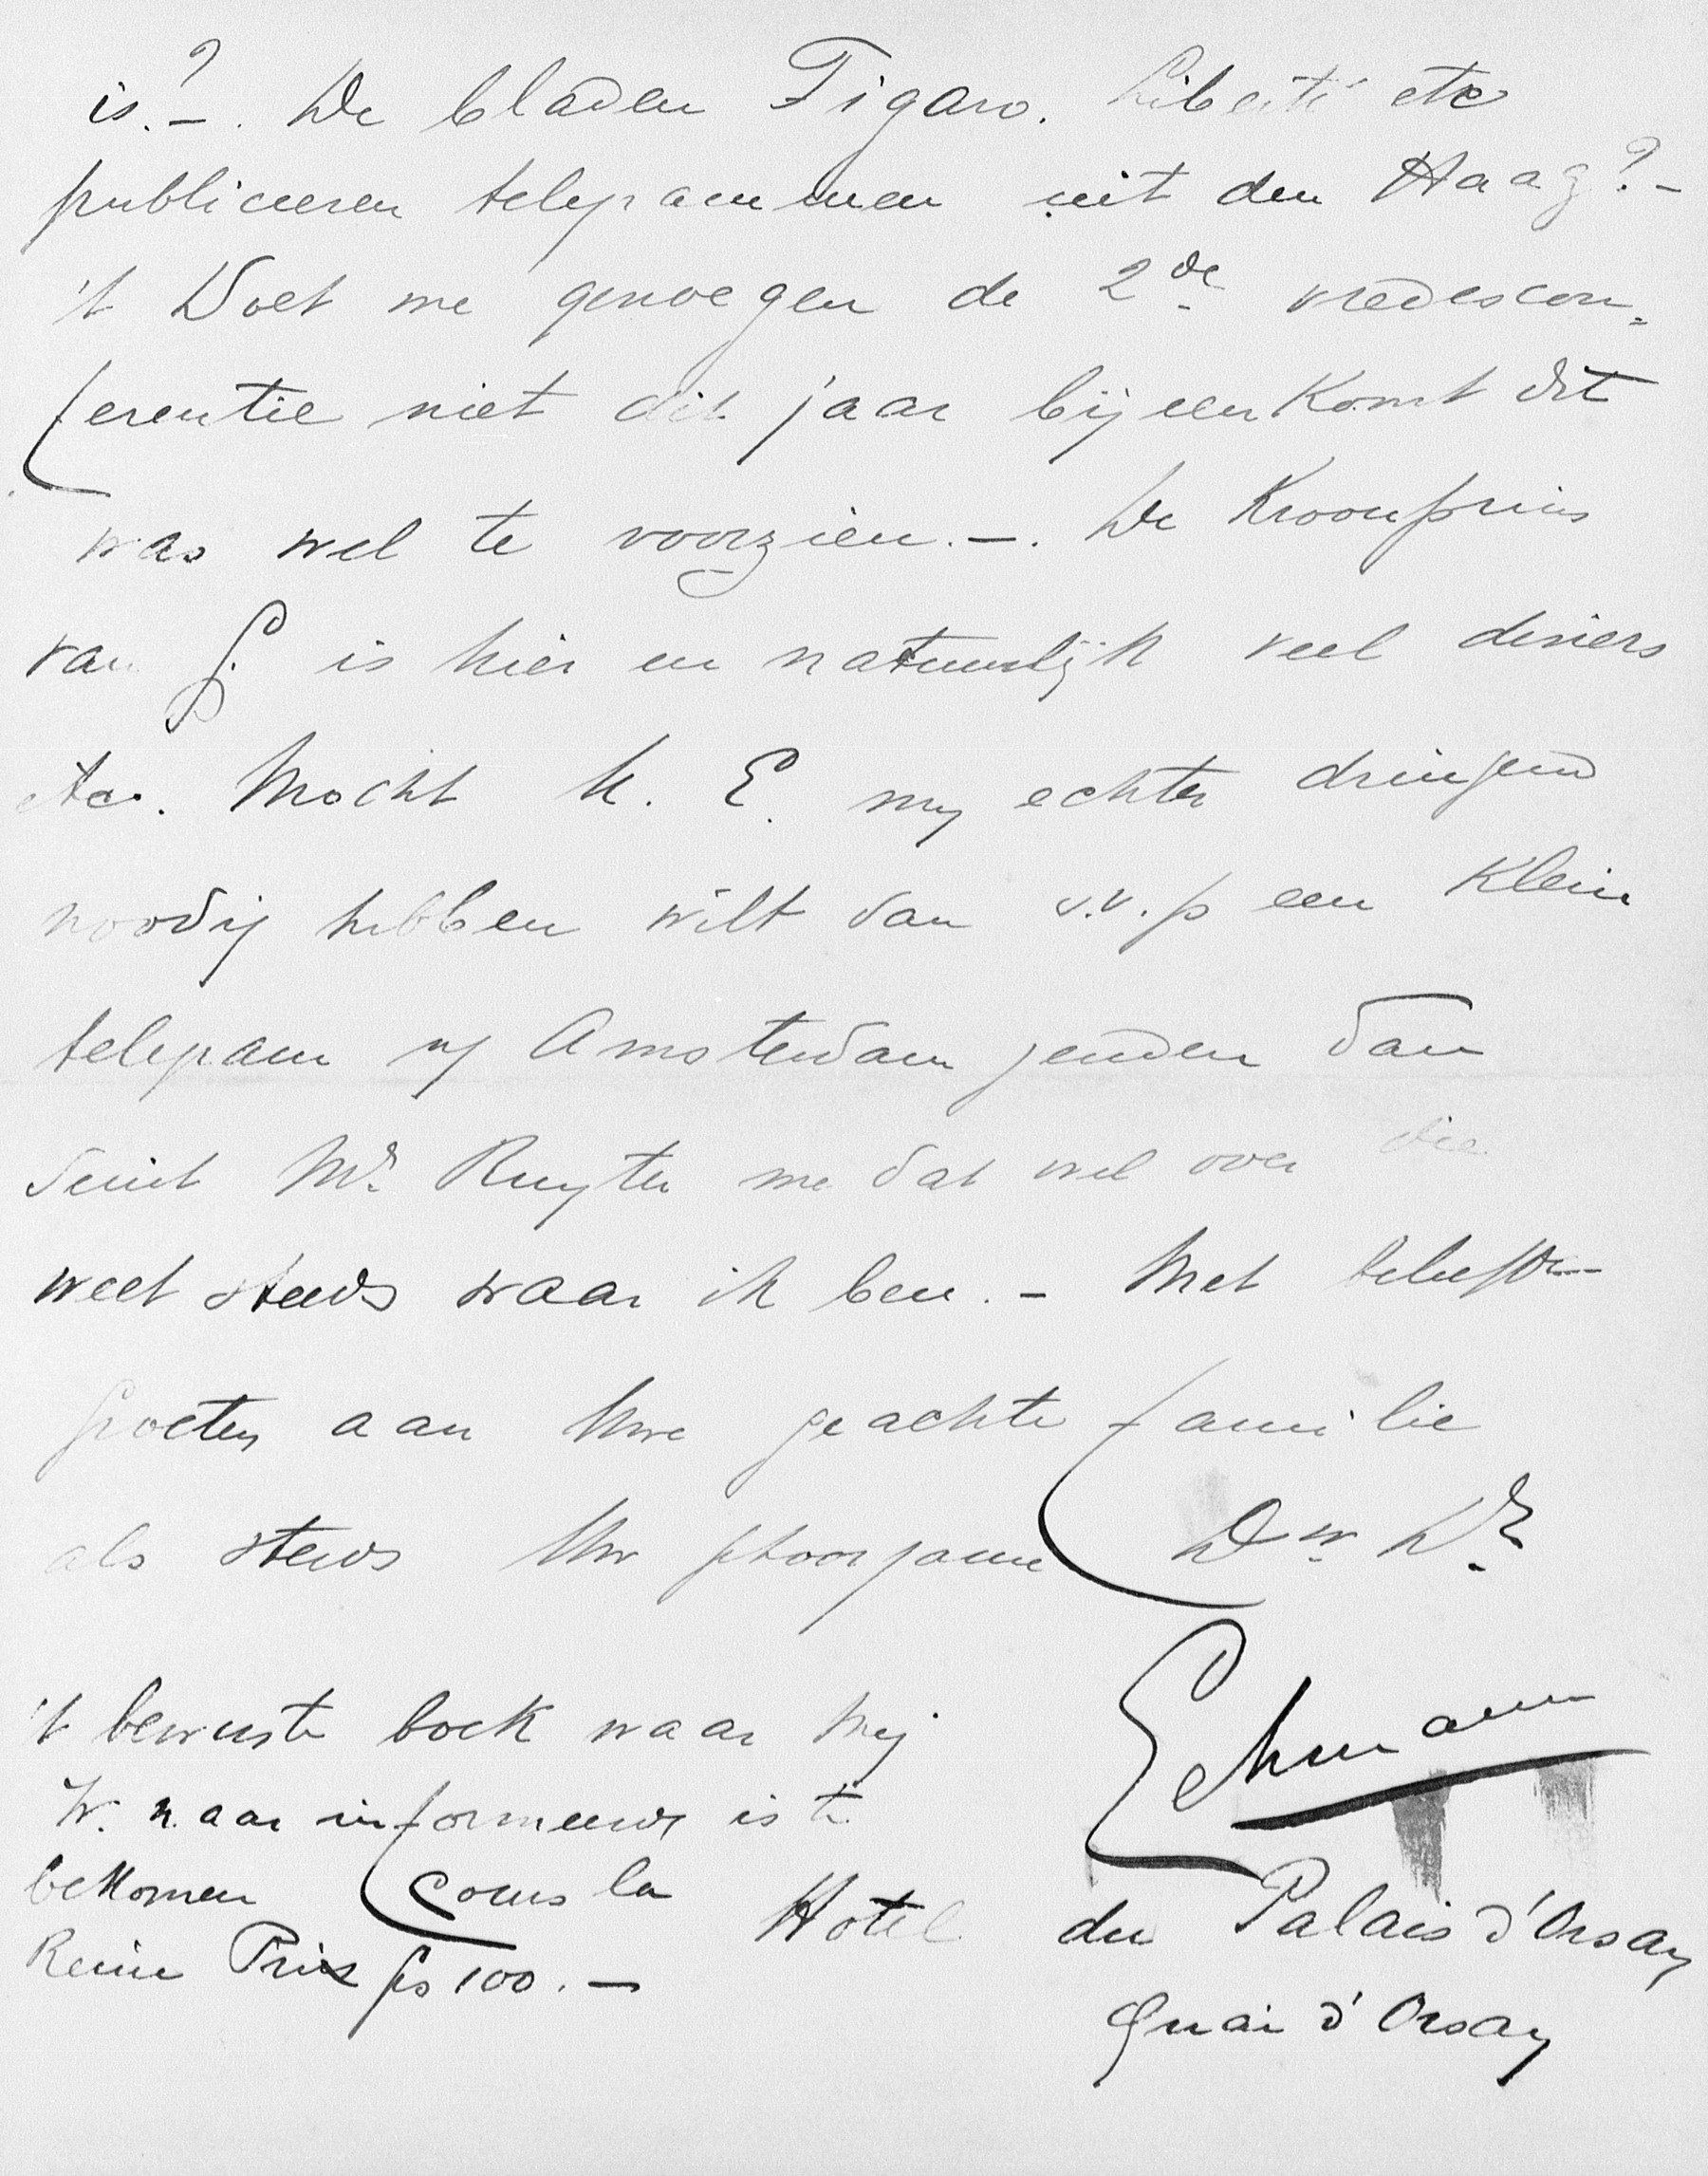 is?-. De bladen Figaro. Liberté etc
publiceeren telegrammen uit den Haag?-
't Doet me genoegen de 2de vredescon=
ferentie niet dit jaar bijeenkomt dit
was wel te voorzien.-. De Kroonprins
van S. is hier en natuurlijk veel diners
etc. Mocht U. E. mij echter dringend
noodig hebben wilt dan s.v.p een klein
telegram n/ Amsterdam zenden dan
seint Mr. Ruyter me dat wel over die
weet steeds waar ik ben.- Met beleefde
groeten aan Uwe geachte familie
als steeds Uw gehoorzame Dw. Dr.
Lehmann
't bewuste boek waar Mej
W. naar informeerde is te
bekomen Cours la
Reine Prix frs 100.-
Hotel du Palais d'Orsay
Quai d'Orsay